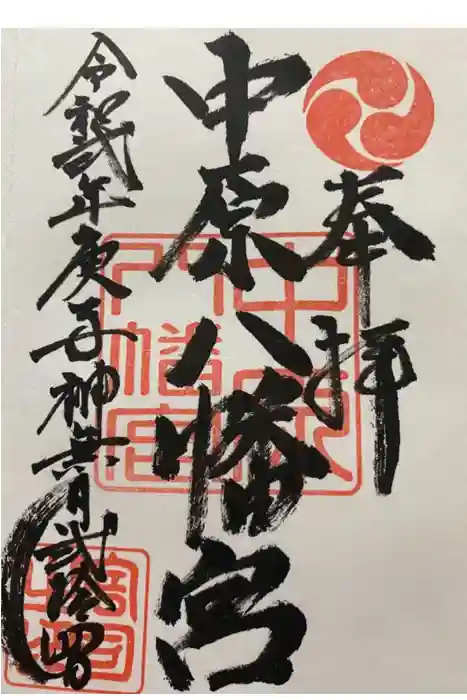 奉拝
中原八幡宮
令和弐年庚子神無月弐拾四日